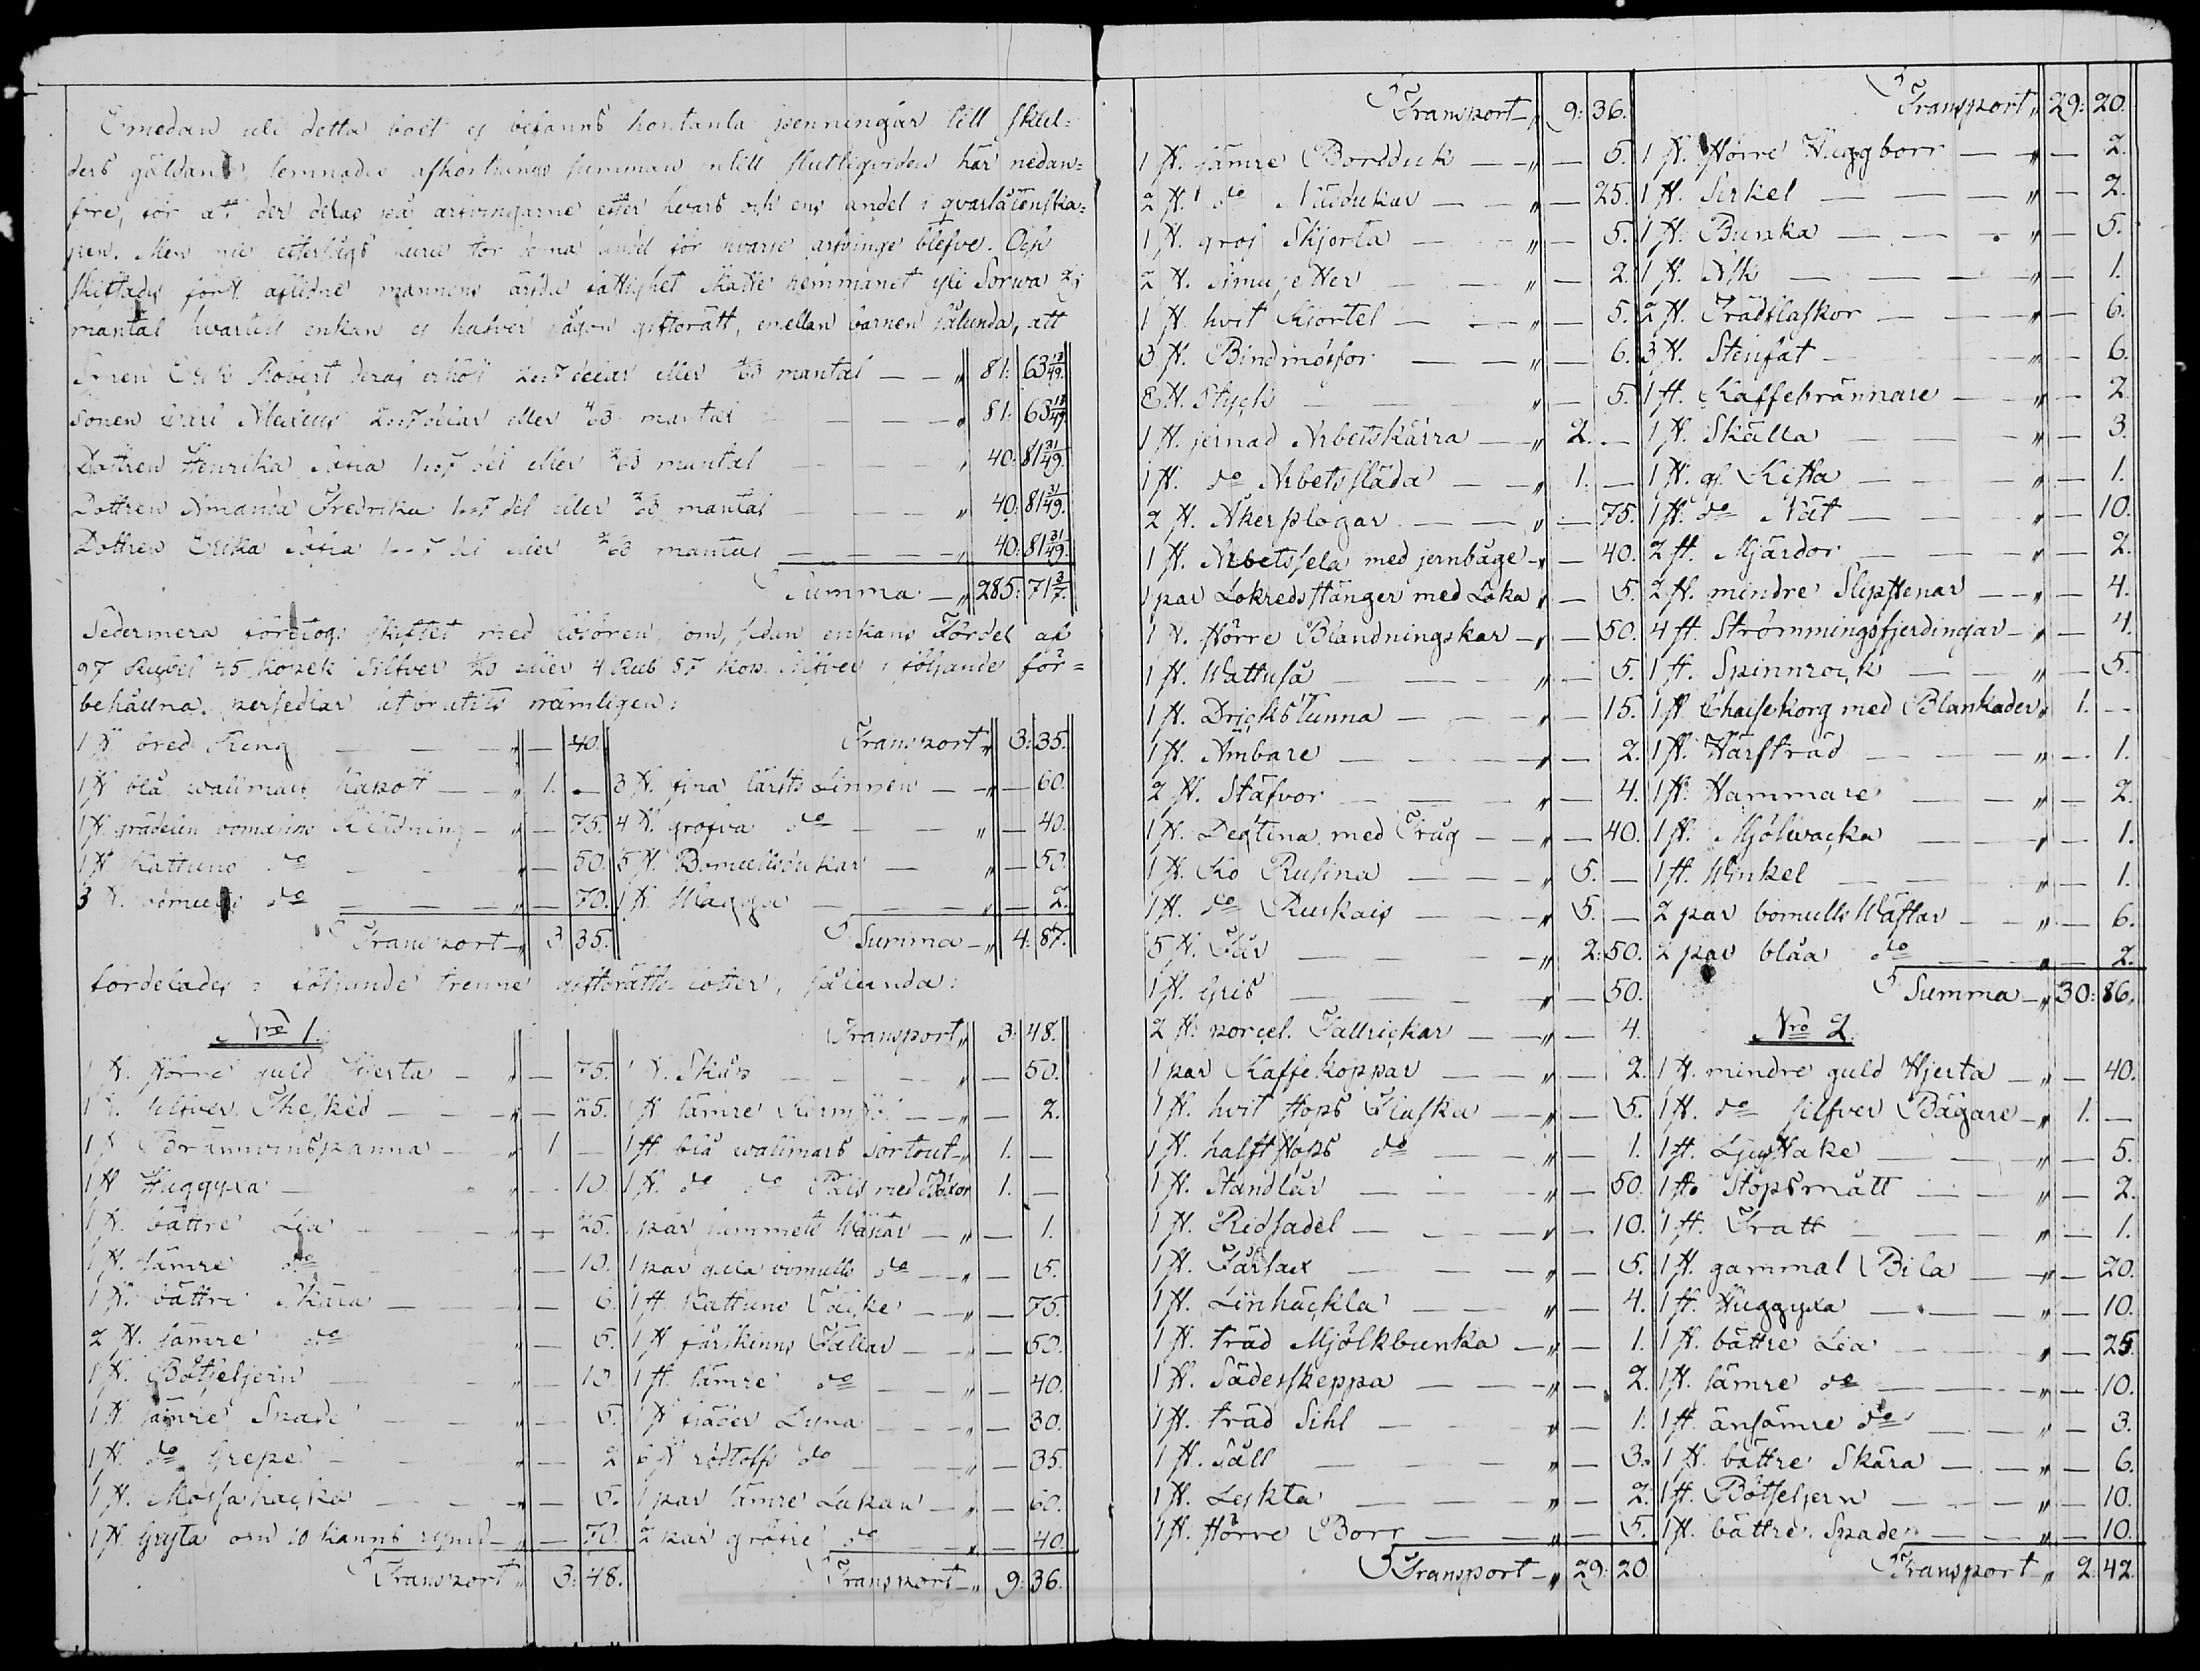 Emedan uti detta boet ej befanns kontanta penningar till skul-
ders gäldand, lemnades afkortnings summan till slutliqviden här nedan-
före, för att der delas på arfvingarne efter hvars och ens andel i qvarlåtenska-
pen. Men nu efterslogs huru stor denna andel för hvarje arfvinge blefve. Och
skiftades först aflidne mannens ärfda fastighet Skatte hemmanet Yli Sorwa
mantal hvartill enkan ej hafver någon giftorätt, emellan barnen sålunda, att
Sonen Erik Robert deraf erhöll 2:7 delar eller 4/63 mantal — „ 81: 63 13/49.
Sonen Carl Alexius 2:7 delar eller 4/63 mantal — „ 81: 63 13/49.
Dottren Henrika Sofia 1:7 del eller 2/63 mantal — „ 40: 81 31/49.
Dottren Amanda Fredrika 1:7 del eller 2/63 mantal — „ 40: 81 31/49.
Dottren Erika Sofia 1:7 del eller 2/63 mantal — „ 40: 81 31/49.
Summa — „ 285: 71 3/7.
Sedermera företogs skiftet med lösören, som, sedan enkans Fördel af
97 Rubel 45 kopek Silfver 1/20 eller 4 Rub 87 kop. Silfver i följande för-
behållna persedlar utbrutits nämligen:
1 st. bred Räng — „ — 40.
1 st. blå wallmars Kapott — „ 1. —
1 st. grådelin bomulls Klädning — „ — 75.
1 st. Kattuns do — „ — 50.
3 st. bomulls do — „ — 70.
Transport — „ 3: 35.
Transport „ 3: 35.
3 st. fina lärfts Linnen — „ — 60.
4 st. grofva do — „ — 40.
5 st. Bomullsdukar — „ — 50.
1 st. Wagga — „ — 2.
Summa — „ 4: 87.
fördelades i följande trenne giftorätts lotter, sålunda:
Nro 1.
1 st. större guld Hjerta — „ — 75.
1 st. silfver Thesked — „ — 25.
1 st. Brännvinspanna — „ 1. —
1 st. Huggyxa — „ — 10.
1 st. bättre Lia — „ — 25.
1 st. sämre do — „ — 10.
1 st. bättre Skära — „ — 6.
2 st. sämre do — „ — 5.
1 st. Båtseljern — „ — 10.
1 st. sämre Spade — „ — 5.
1 st. do Grepe — „ — 2
1 st. Mossahacka — „ — 5.
1 st. Gryta om 10 kanns rymd — „ — 70.
Transport „ 3: 48.
Transport „ 3: 48.
1 st. Skåp — „ — 50.
1 st. sämre — „ — 2.
1 st. blå wallmars Sortout — „ 1. —
1 st. do do Päls med Böxor 1. —
1 par — „ — 1.
1 par gula bomulls do — „ — 5.
1 st. Kattuns Täcke — „ — 75.
1 st. fårskinns Fällar — „ — 50.
1 st. sämre do — „ — 40.
1 st. fjäder Dyna — „ — 30.
6 st. do — „ — 35.
1 par sämre Lakan — „ — 60.
2 par gröfre do — „ — 40.
Transport — „ 9: 36.
Transport — „ 9: 36.
1 st. sämre Bordduk — „ — 5.
2 st. do Näsdukar — „ — 25.
1 st. grof Skjorta — „ — 5.
2 st. — „ — 2.
1 st. hvit Kjortel — „ — 5.
3 st. Bindmössor — „ — 6.
8 st. Styck — „ — 5.
1 st. jernad Arbetskärra — „ 2. —
1 st. do Arbetssläda — „ 1. —
2 st. Åkerplogar — „ — 75.
1 st. Arbetssela med jernbåge — „ — 40.
1 par Lokredsstänger med Loka „ — 5.
1 st. större Blandningskar — „ — 50.
1 st. Wattuså — „ — 5.
1 st. Drickstunna — „ — 15.
1 st. Ämbare — „ — 2.
2 st. Stäfvor — „ — 4.
1 st. Degtina med Tråg — „ — 40.
1 st. Ko Rusina — „ 5. —
1 st. do Ruskais — „ 5. —
5 st. Får — „ 2: 50.
1 st. Gris — „ — 50.
2 st. porcel. Tallrickar — „ — 4.
1 par Kaffekoppar — „ — 2.
1 st. hvit stops Flaska — „ — 5.
1 st. halfstops do — „ — 1.
1 st. Standlår — „ — 50.
1 st. Ridsadel — „ — 10.
1 st. Fårsax — „ — 5.
1 st. Linhäckla — „ — 4.
1 st. träd Mjölkbunka — „ — 1.
1 st. Sädesskeppa — „ — 2.
1 st. träd Sihl — „ — 1.
1 st. Såll — „ — 3.
1 st. Lykta — „ — 2.
1 st. större Borr — „ — 5.
Transport — „ 29: 20
Transport „ 29: 20.
1 st. större Huggborr — „ — 2.
1 st. Sirkel — „ — 2.
1 st. Bunka — „ — 5.
1 st. Ask — „ — 1.
2 st. Trädflaskor — „ — 6.
3 st. Stenfat — „ — 6.
1 st. Kaffebrännare — „ — 2.
1 st. Skälla — „ — 3.
1 st. gl. Kista — „ — 1.
1 st. do Nät — „ — 10.
2 st. Mjärdor — „ — 2.
2 st. mindre Slipstenar — „ — 4.
4 st. Strömmingsfjerdingar — „ — 4.
1 st. Spinnrock — „ — 5.
1 st. Chaisekorg med Blankader „ 1. —
1 st. Härfträd — „ — 1.
1 st. Hammare — „ — 2.
1 st. Mjölwacka — „ — 1.
1 st. Winkel — „ — 1.
2 par bomulls Wäftar — „ — 6.
2 par blåa do — „ — 2.
Summa — „ 30: 86.
Nro 2.
1 st. mindre guld Hjerta — „ — 40.
1 st. do silfver Bägare — „ 1. —
1 st. Ljusstake — „ — 5.
1 st. Stopsmått — „ — 2.
1 st. Tratt — „ — 1.
1 st. gammal Bila — „ — 20.
1 st. Huggyxa — „ — 10.
1 st. bättre Lia — „ — 25.
1 st. sämre do — „ — 10.
1 st. änsämre do — „ — 3.
1 st. bättre Skära — „ — 6.
1 st. Båtseljern — „ — 10.
1 st. bättre Spade — „ — 10.
Transport — „ 2: 42.